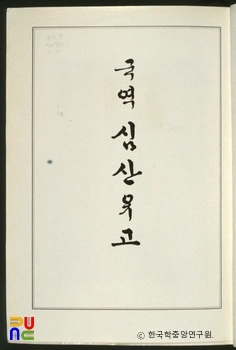 국역 심산유고
© 한국학중앙연구원